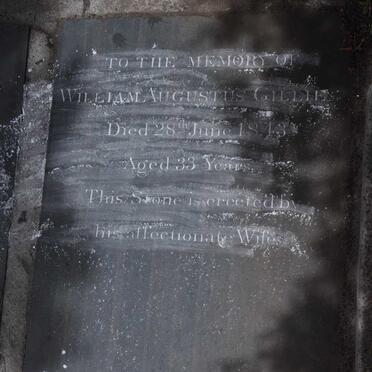 TO THE MEMORY OF
WILLIAM AUGUSTUS
Died 28th June
Aged 33 Years.
This Stone is erected by
his affectionate Wife